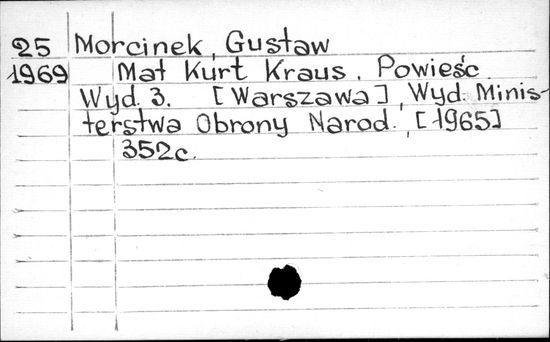 25 Morcinek, Gustaw
1969 Mat Kurt Kraus. Powieść
Wyd. 3. [Warszawa], Wyd. Minis-
terstwa Obrony Narod., [1965]
352c.